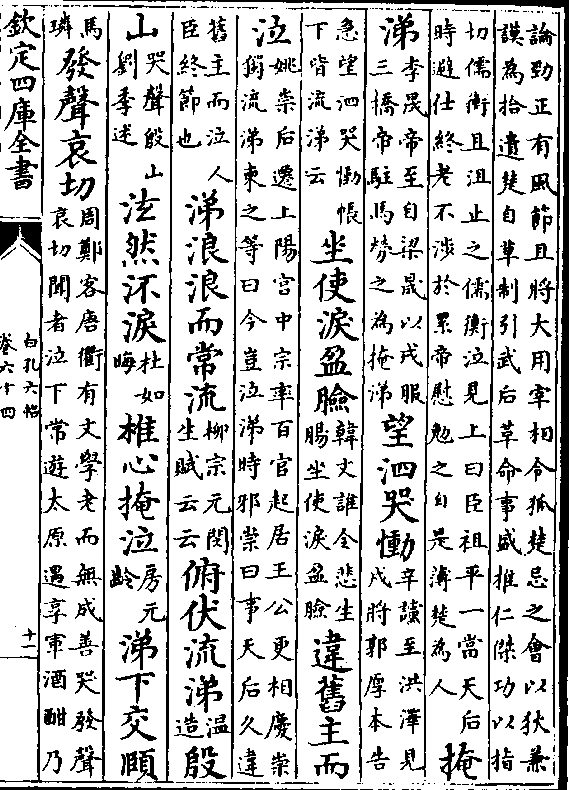 論勁正有風節且將大用宰相令狐楚忌之會以狄兼
謨為拾遺楚自草制引武后革命事盛推仁傑功以指
切儒衡且沮止之儒衡泣見上曰臣祖平一當天后
時避仕終老不涉於累帝慰勉之自是薄楚為人
掩
涕
李晟帝至自梁晟以戎服
三橋帝駐馬勞之為掩涕
望泗哭慟
辛讜至洪澤見
戍將郭厚本告
急望泗哭慟帳
下皆流涕云
坐使淚盈臉
韓文誰令悲生
腸坐使淚盈臉
違舊主而
泣
姚崇后遷上陽宮中宗率百官起居王公更相慶崇
獨流涕柬之等曰今豈泣涕時邪崇曰事天后久違
舊主而泣人
臣終節也
涕浪浪而常流
柳宗元閔
生賦云云
俯伏流涕
温
造
殷
山
哭聲殷山
劉季述
泫然沠淚
杜如
晦
椎心掩泣
房元
齡
涕下交頤
馬
璘
發聲哀切
周鄭客唐衢有文學老而無成善哭發聲
哀切聞者泣下常遊太原遇享軍酒酣乃
欽定四庫全書
白孔六帖
卷六十四
十二